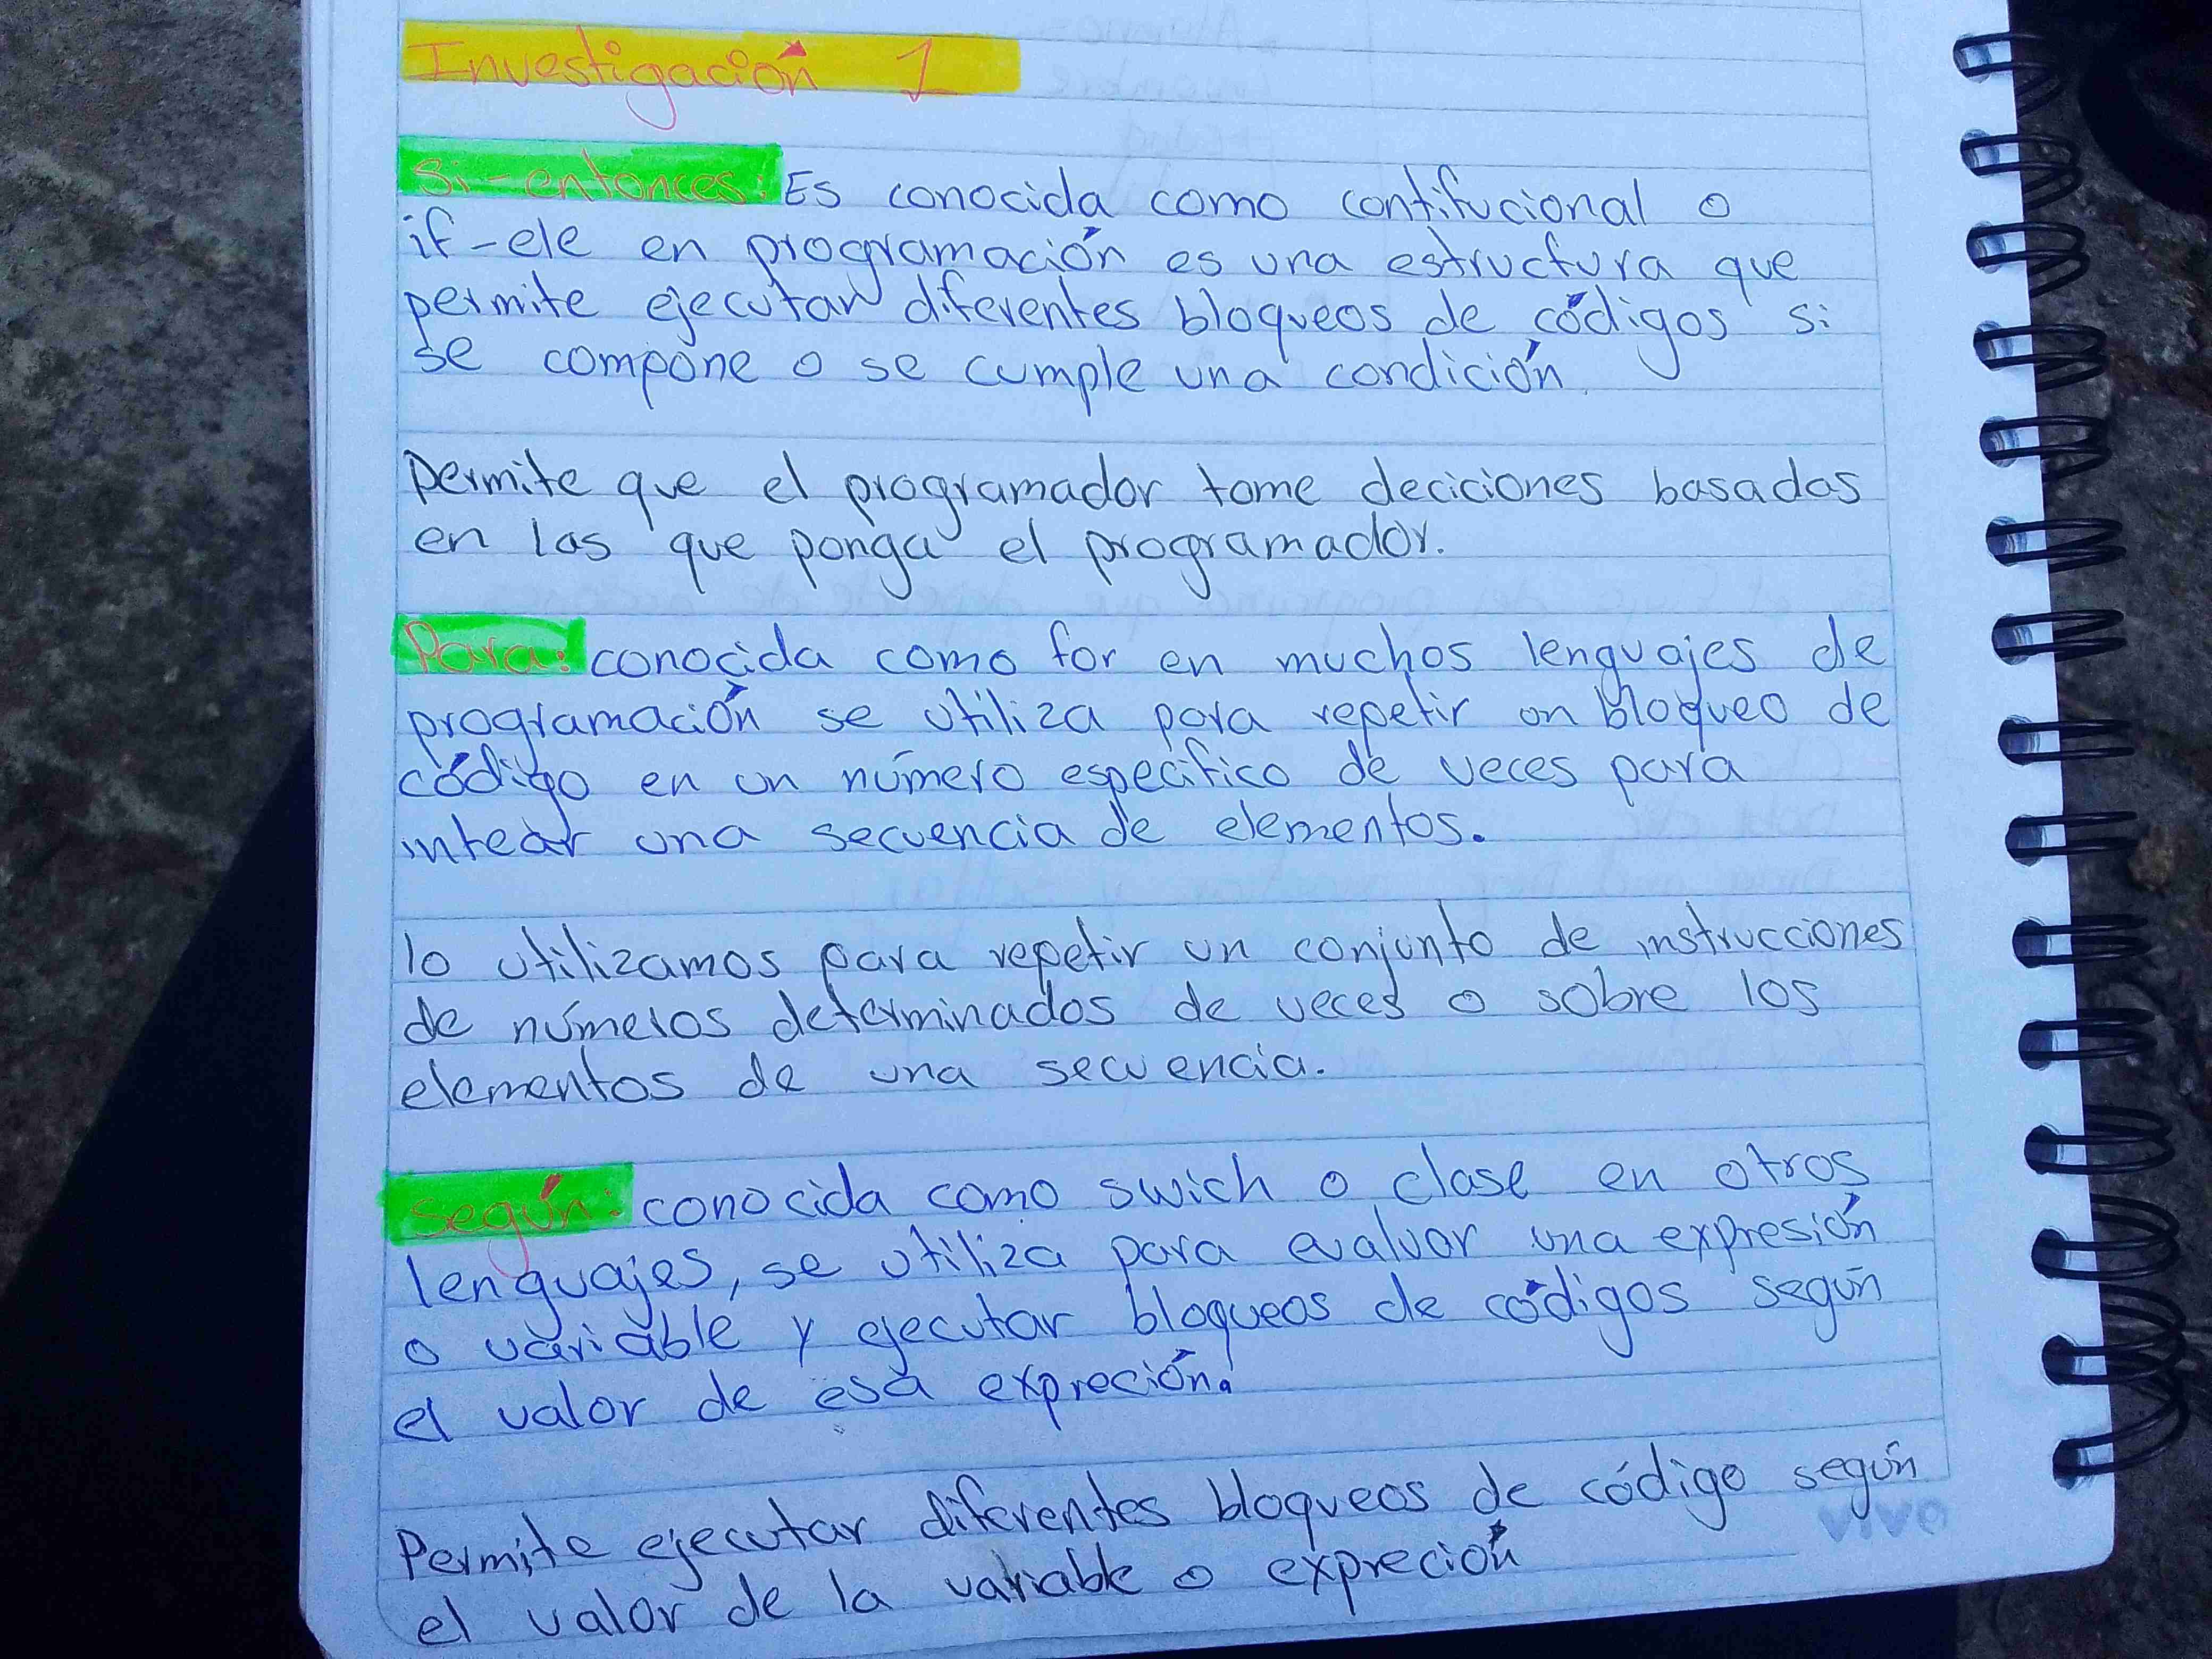 Investigación 1
Si-entonces: Es conocida como contifucional o
if-ele en programación es una estructura que
permite ejecutar diferentes bloqueos de códigos si
se compone o se cumple una condición.
Permite que el programador tome deciciones basadas
en las que ponga el programador.
Para: conocida como for en muchos lenguajes de
programación se utiliza para repetir un bloqueo de
código en un número especifico de veces para
intear una secuencia de elementos.
lo utilizamos para repetir un conjunto de instrucciones
de números determinados de veces o sobre los
elementos de una secuencia.
según: conocida como swich o clase en otros
lenguajes, se utiliza para evaluar una expresión
o variable y ejecutar bloqueos de códigos según
el valor de esa expreción.
Permite ejecutar diferentes bloqueos de código según
el valor de la variable o expreción
vivo